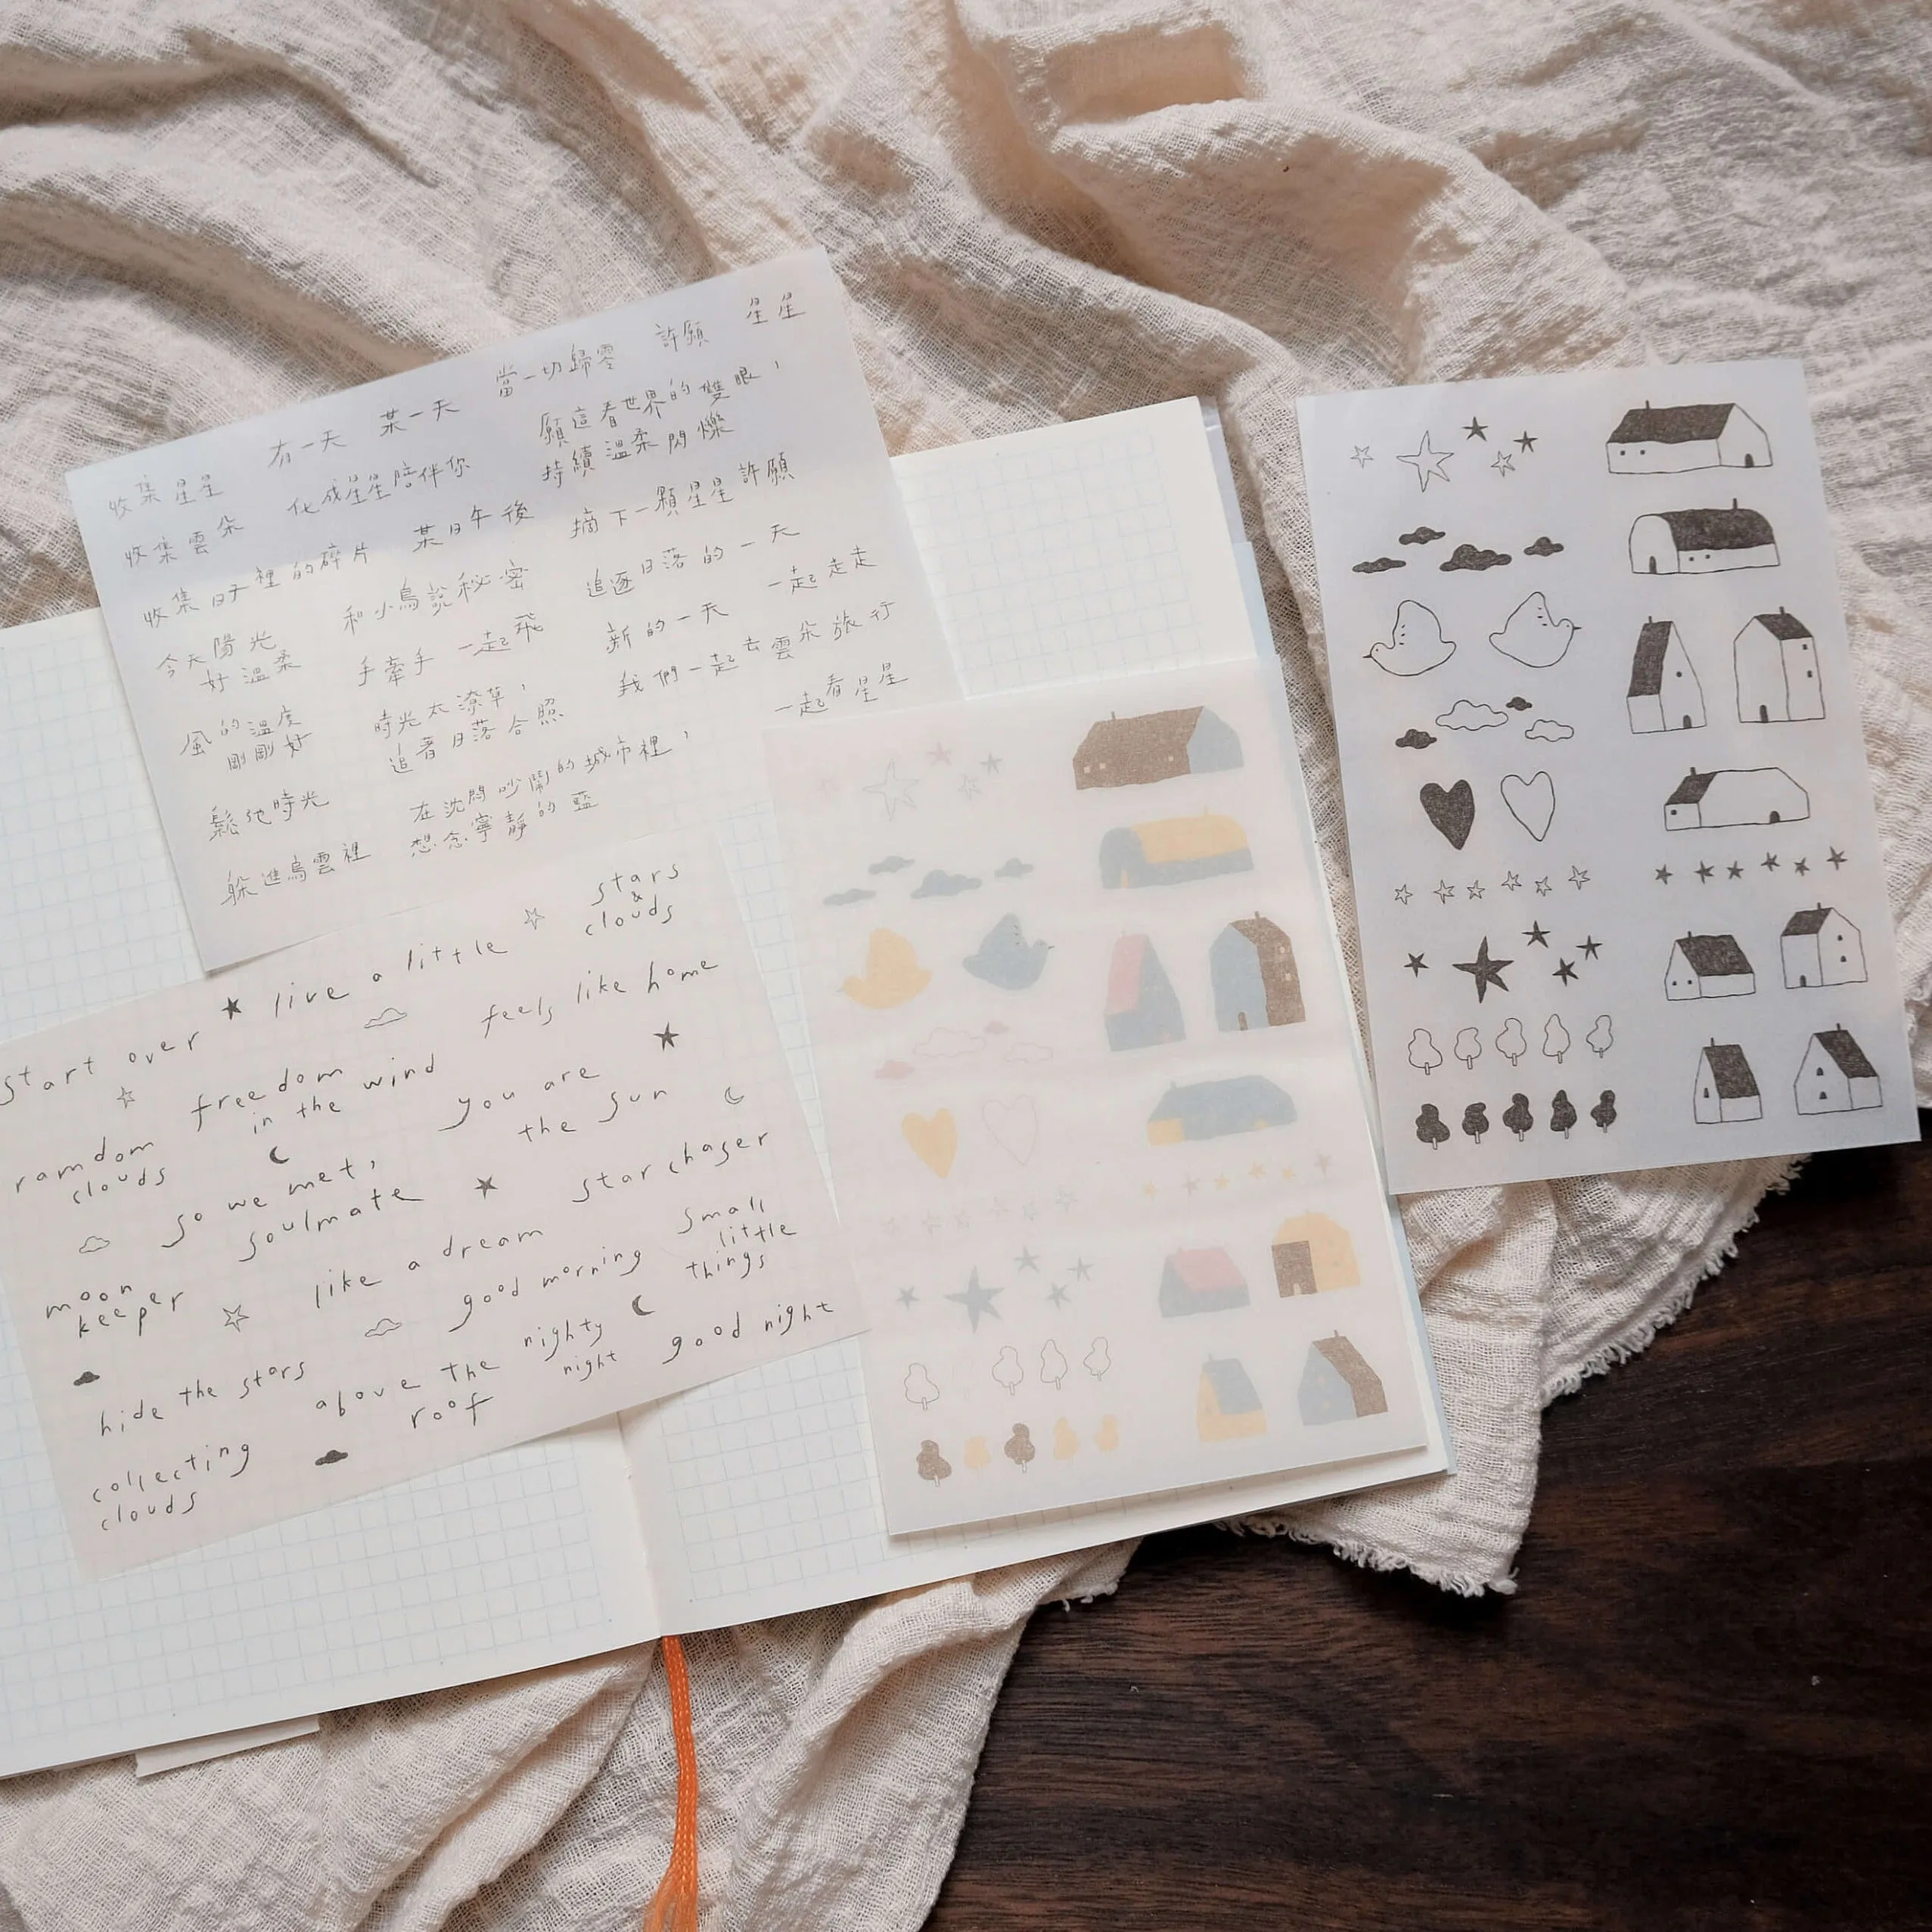 星星
許願
當一切歸零
某一天
有一天
收集星星
願這看世界的雙眼，
持續溫柔閃爍
化成星星陪伴你
收集雲朵
摘下一顆星星許願
某日午後
收集日子裡的碎片
追逐日落的一天
和小鳥說秘密
今天陽光
好溫柔
一起走走
新的一天
手牽手一起飛
風的溫度
剛剛好
我們一起去雲朵旅行
時光太潦草，
追著日落合照
一起看星星
鬆弛時光
在沈悶吵鬧的城市裡，
想念寧靜的藍
躲進烏雲裡
stars
&
clouds
live a little
start over
feels like home
freedom
in the wind
you are
the sun
ramdom
clouds
so we met,
soulmate
star chaser
moon
keeper
like a dream
good morning
small
little
things
hide the stars
above the
roof
nighty
night
good night
collecting
clouds